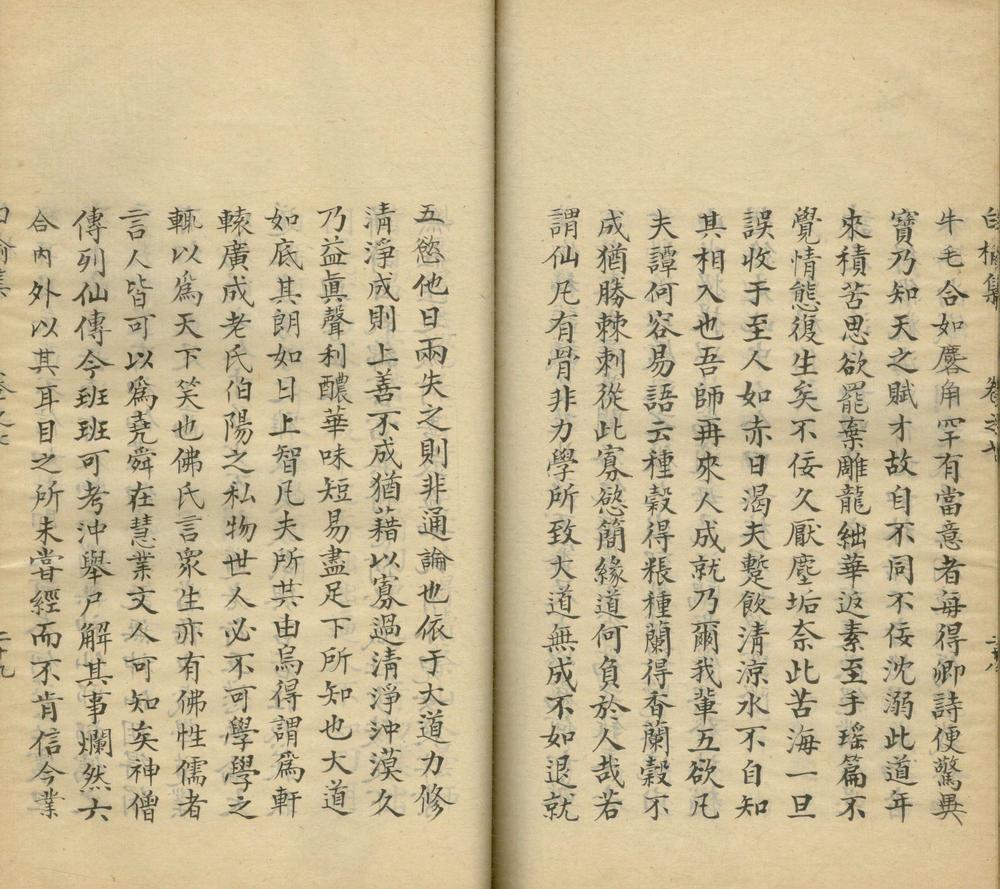 白榆集 卷之七
牛毛合如麐角罕有當意者每得卿詩便驚異
寶乃知天之賦才故自不同不佞沈溺此道年
來積苦思欲罷棄雕龍絀華返素至手瑤篇不
覺情態復生矣不佞久厭塵垢奈此苦海一旦
誤收于至人如赤日渴夫蹔飲清涼水不自知
其相入也吾師再來人成就乃爾我輩五欲凡
夫譚何容易語云種穀得粻種蘭得香蘭穀不
成猶勝棘刺從此寡慾簡緣道何負於人哉若
謂仙凡有骨非力學所致大道無成不如退就
五慾他日兩失之則非通論也依于大道力修
清淨成則上善不成猶藉以寡過清淨沖漠久
乃益眞聲利醲華味短易盡足下所知也大道
如底其朗如日上智凡夫所共由烏得謂爲軒
轅廣成老氏伯陽之私物世人必不可學學之
輒以爲天下笑也佛氏言衆生亦有佛性儒者
言人皆可以爲堯舜在慧業文人可知矣神僧
傳列仙傳今班班可考沖舉尸解其事爛然六
合內外以其耳目之所未嘗經而不肯信今業